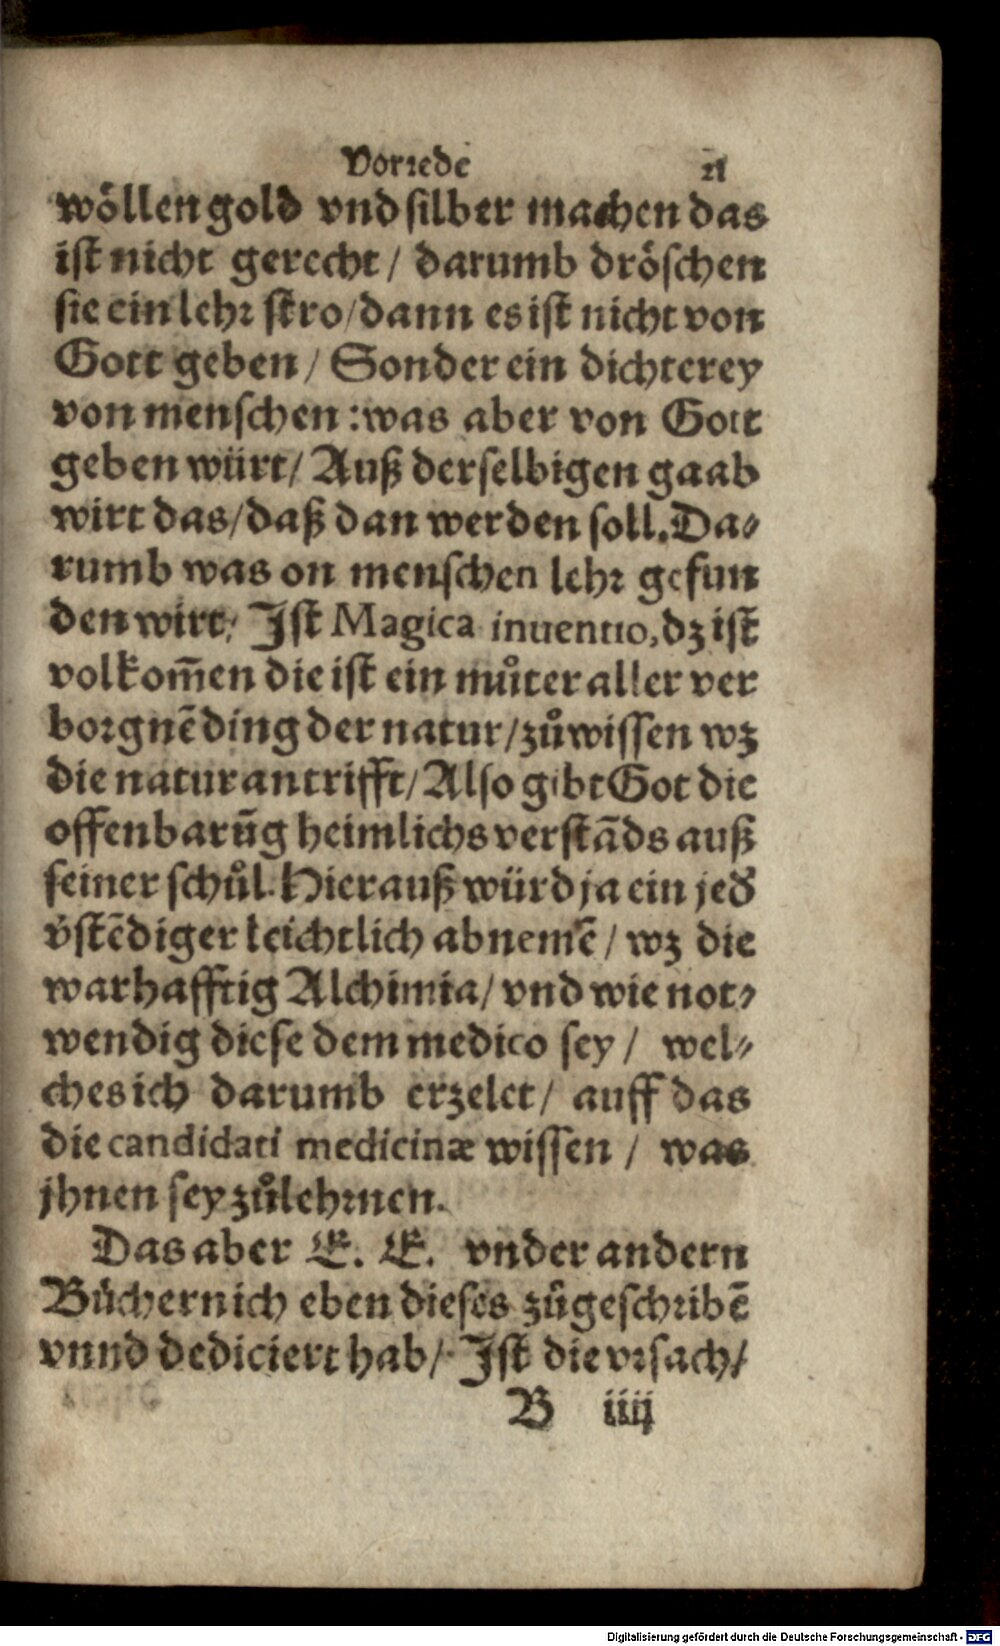 Vorrede 21
wöllen gold vnd silber machen das
ist nicht gerecht / darumb dröschen
sie ein lehr stro / dann es ist nicht von
Gott geben / Sonder ein dichterey
von menschen : was aber von Gott
geben würt / Auß derselbigen gaab
wirt das / daß dan werden soll. Da⸗
rumb was on menschen lehr gefun
den wirt / Ist Magica inuentio, dz ist
volkom̄en die ist ein můter aller ver
borgnē ding der natur / zůwissen wz
die natur antrifft / Also gibt Got die
offenbarūg heimlichs verstāds auß
seiner schůl. Hierauß würd ja ein jed̕
v̕stēdiger leichtlich abnemē / wz die
warhafftig Alchimia / vnd wie not⸗
wendig diese dem medico sey / wel⸗
ches ich darumb erzelet / auff das
die candidati medicinæ wissen / was
jhnen sey zůlehrnen.
Das aber E. E. vnder andern
Bůchern ich eben dieses zůgeschribē
vnnd dediciert hab / Ist die vrsach /
B iiij
Digitalisierung gefördert durch die Deutsche Forschungsgemeinschaft - DFG